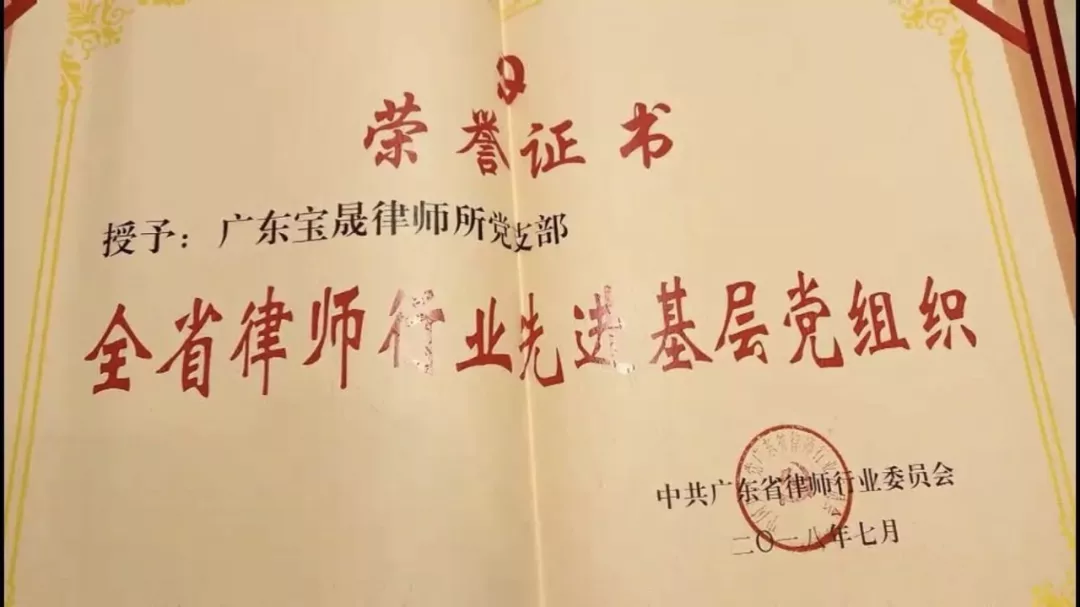 荣誉证书
授予：广东宝晟律师所党支部
全省律师行业先进基层党组织
中共广东省律师行业委员会
二〇一八年七月